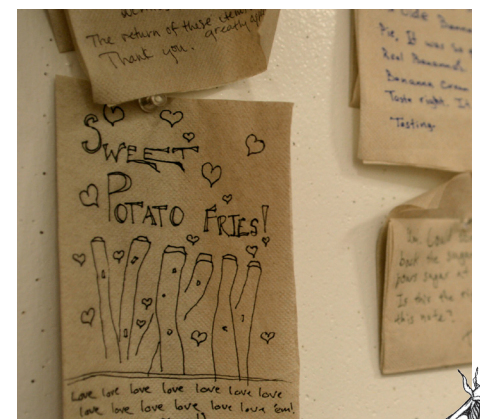 The return of these items
Thank you. greatly
SWEET
POTATO FRIES!
Love love love love love love love
love love love love love love 'em!
Banana
Pie, It was so
Real Bananas.
Banana Cream
Taste right. It
Testing.
but the sugar
your sugar
Is this the
this note?